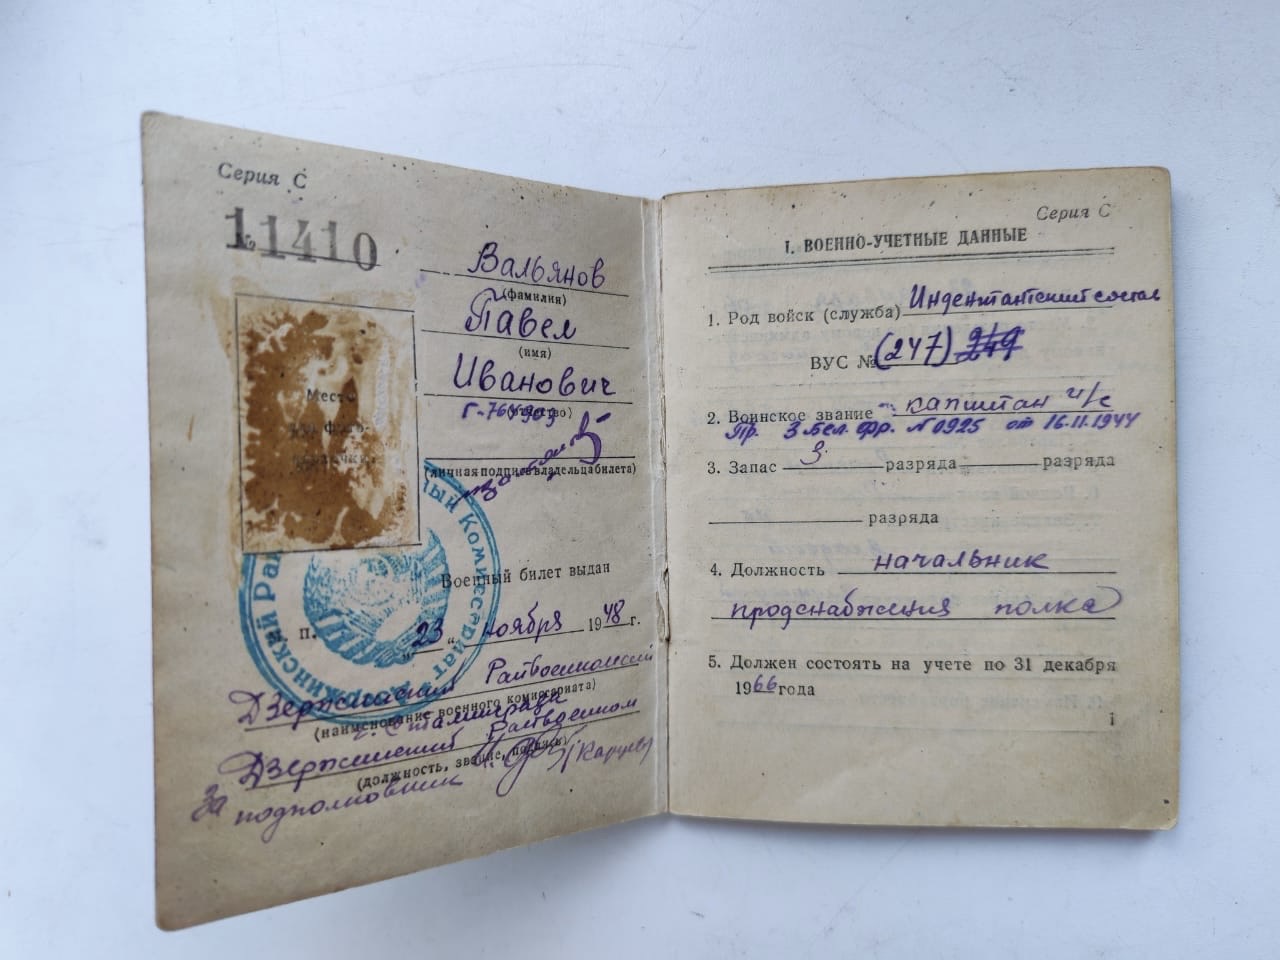 Серия С
11410
Вальянов
(фамилия)
Павел
(имя)
Иванович
(отчество)
Г-764903
Место
для фото-
карточки
(личная подпись владельца билета)
Военный билет выдан
п. „23“ ноября 1948 г.
Дзержинский Райвоенкомат
(наименование военного комиссариата)
г. Сталинграда
Дзержинский Райвоенком
(должность, звание, подпись)
За подполковник
Дзержинский Рай ный Комиссариат
Серия С
I. ВОЕННО-УЧЕТНЫЕ ДАННЫЕ
1. Род войск (служба) Индентантский состав
ВУС № (247) 249
2. Воинское звание капитан и/с
Пр. 3 Бел. фр. № 0925 от 16.11.1944
3. Запас 3 разряда разряда
разряда
4. Должность начальник
продснабжения полка
5. Должен состоять на учете по 31 декабря
1966 года
1